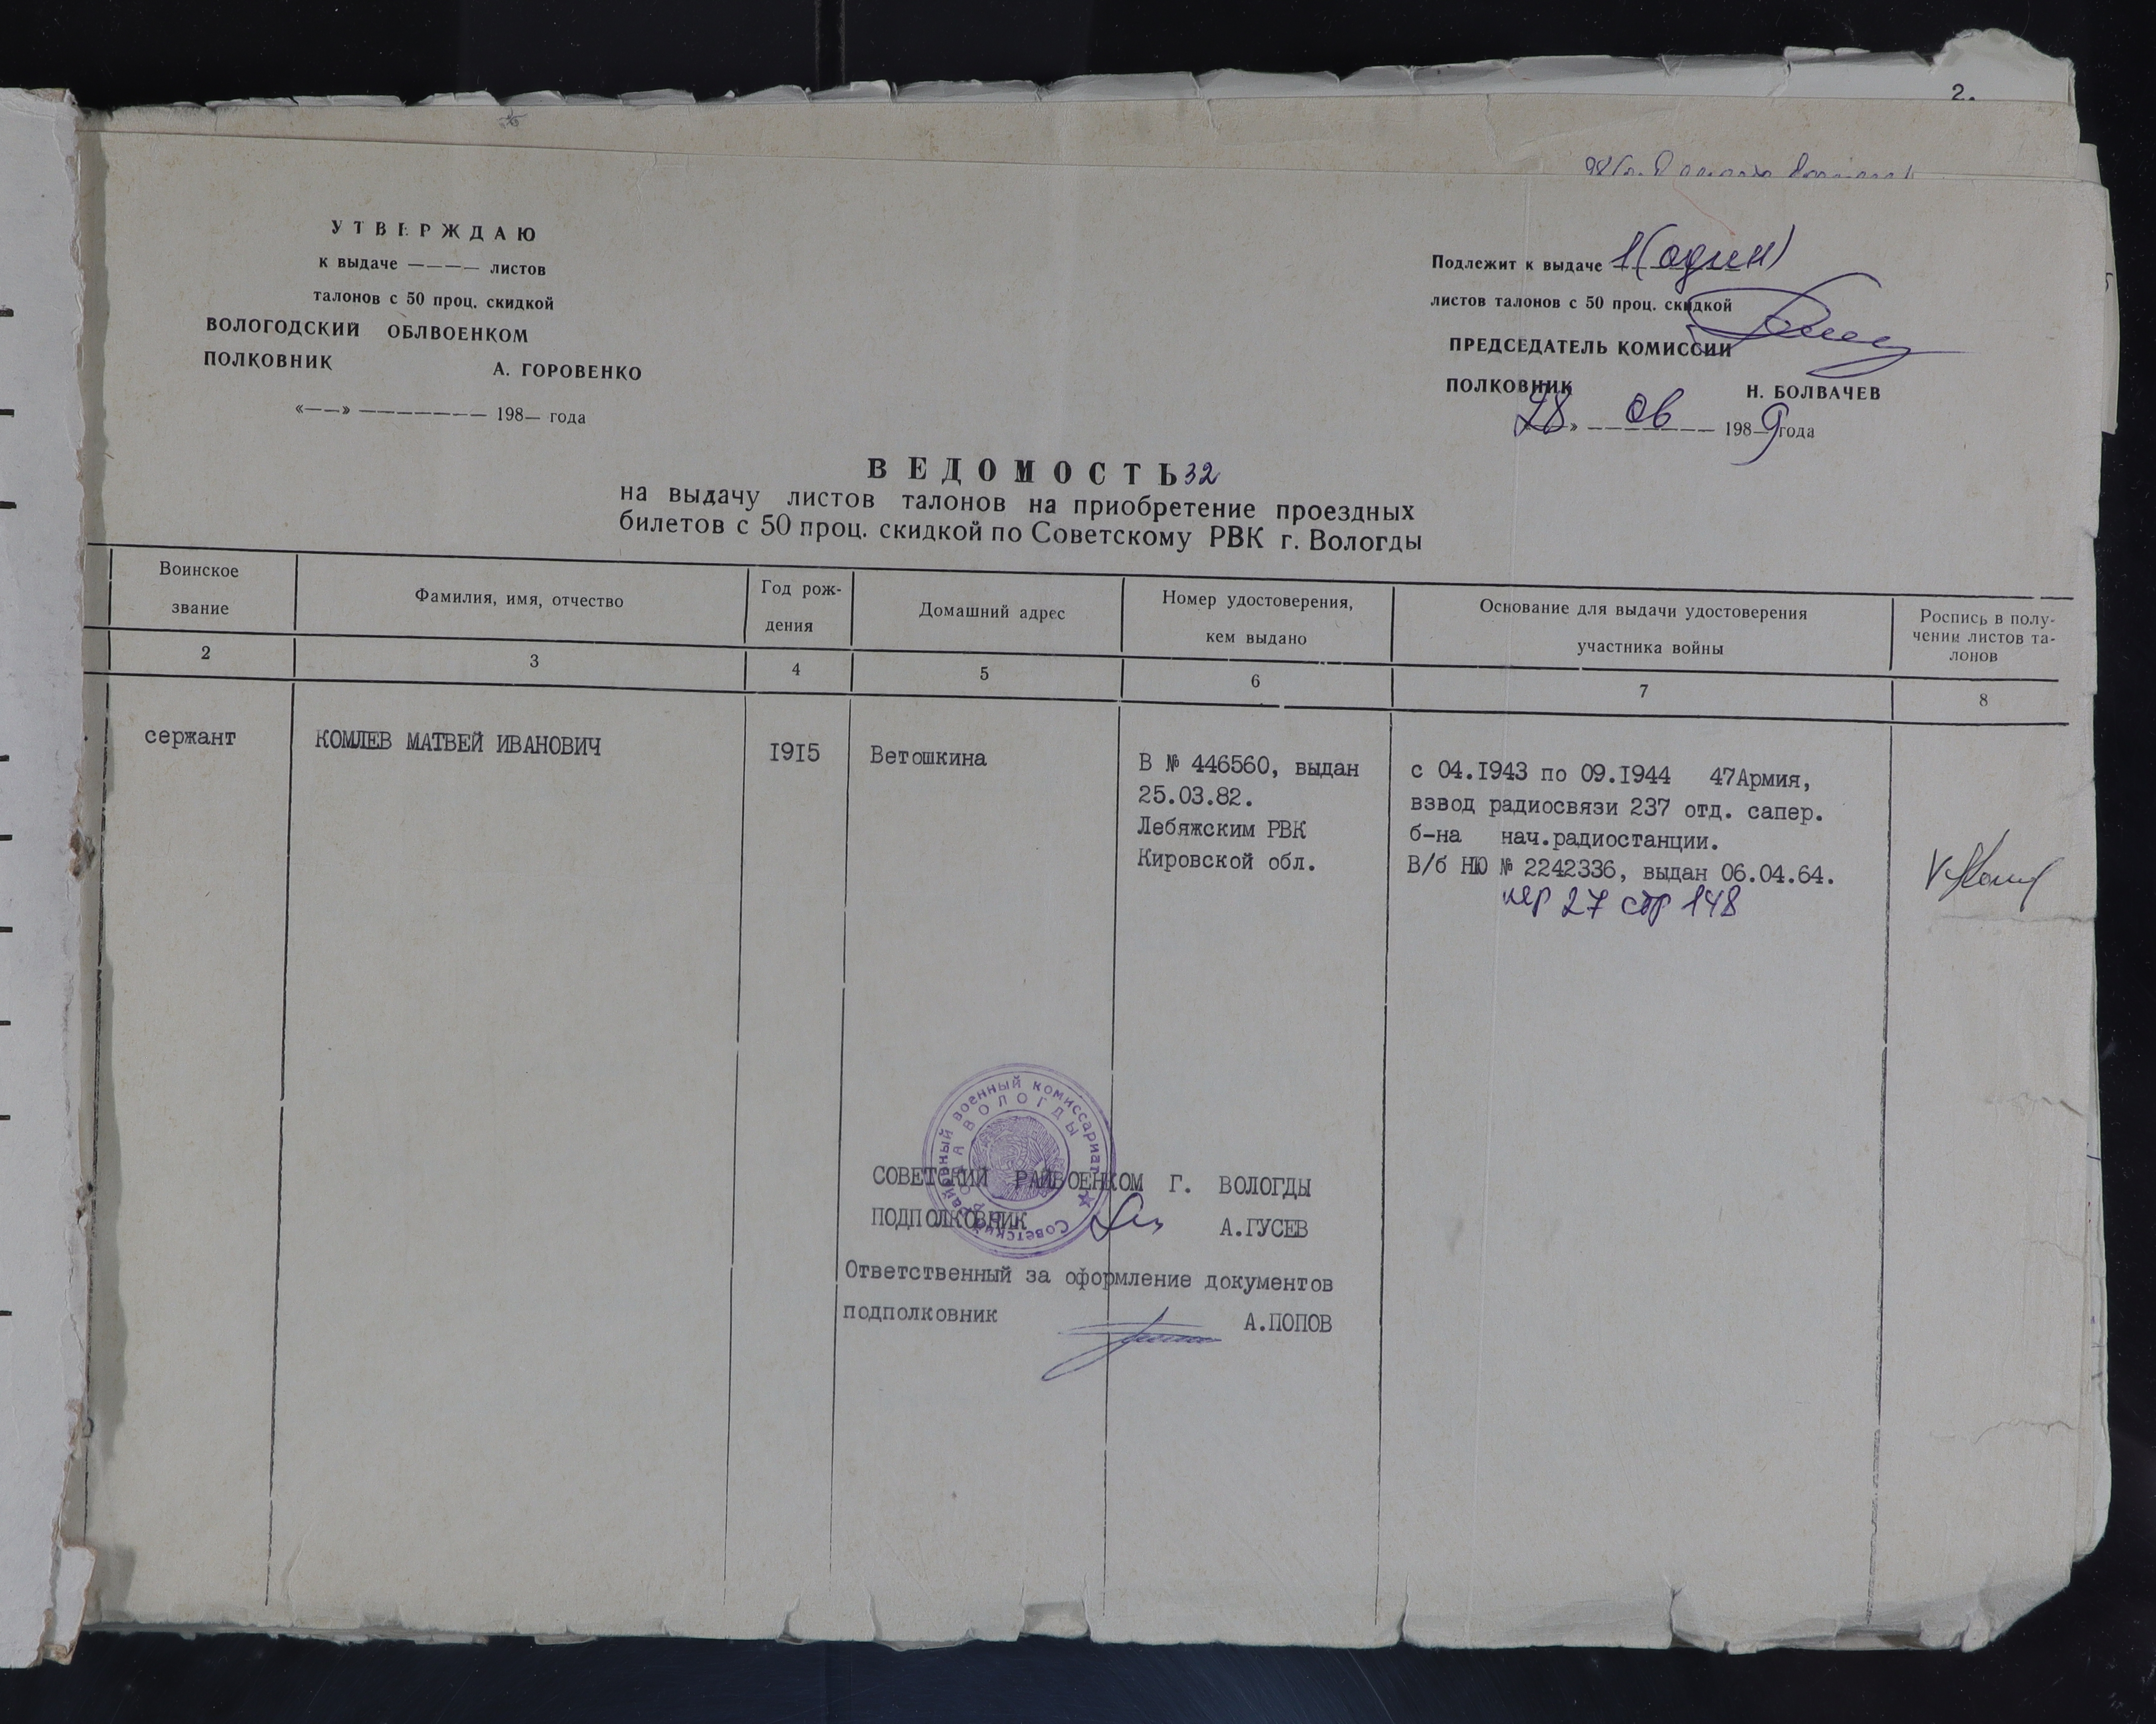 2.
УТВЕРЖДАЮ
к выдаче ———— листов
талонов с 50 проц. скидкой
ВОЛОГОДСКИЙ ОБЛВОЕНКОМ
ПОЛКОВНИК А. ГОРОВЕНКО
«——» ——————— 198— года
Подлежит к выдаче 1 (один)
листов талонов с 50 проц. скидкой
ПРЕДСЕДАТЕЛЬ КОМИССИИ
ПОЛКОВНИК Н. БОЛВАЧЕВ
«28» 06 1989 года
ВЕДОМОСТЬ 32
на выдачу листов талонов на приобретение проездных
билетов с 50 проц. скидкой по Советскому РВК г. Вологды
Воинское
звание
Фамилия, имя, отчество
Год рож-
дения
Домашний адрес
Номер удостоверения,
кем выдано
Основание для выдачи удостоверения
участника войны
Роспись в полу-
чении листов та-
лонов
2 3 4 5 6 7 8
сержант
КОМЛЕВ МАТВЕЙ ИВАНОВИЧ
1915
Ветошкина
В № 446560, выдан
25.03.82.
Лебяжским РВК
Кировской обл.
с 04.1943 по 09.1944 47Армия,
взвод радиосвязи 237 отд. сапер.
б-на нач.радиостанции.
В/б НЮ № 2242336, выдан 06.04.64.
пер 27 стр 148
Советский районный военный комиссариат
ГОРОДА ВОЛОГДЫ
СОВЕТСКИЙ РАЙВОЕНКОМ Г. ВОЛОГДЫ
ПОДПОЛКОВНИК А.ГУСЕВ
Ответственный за оформление документов
подполковник А.ПОПОВ